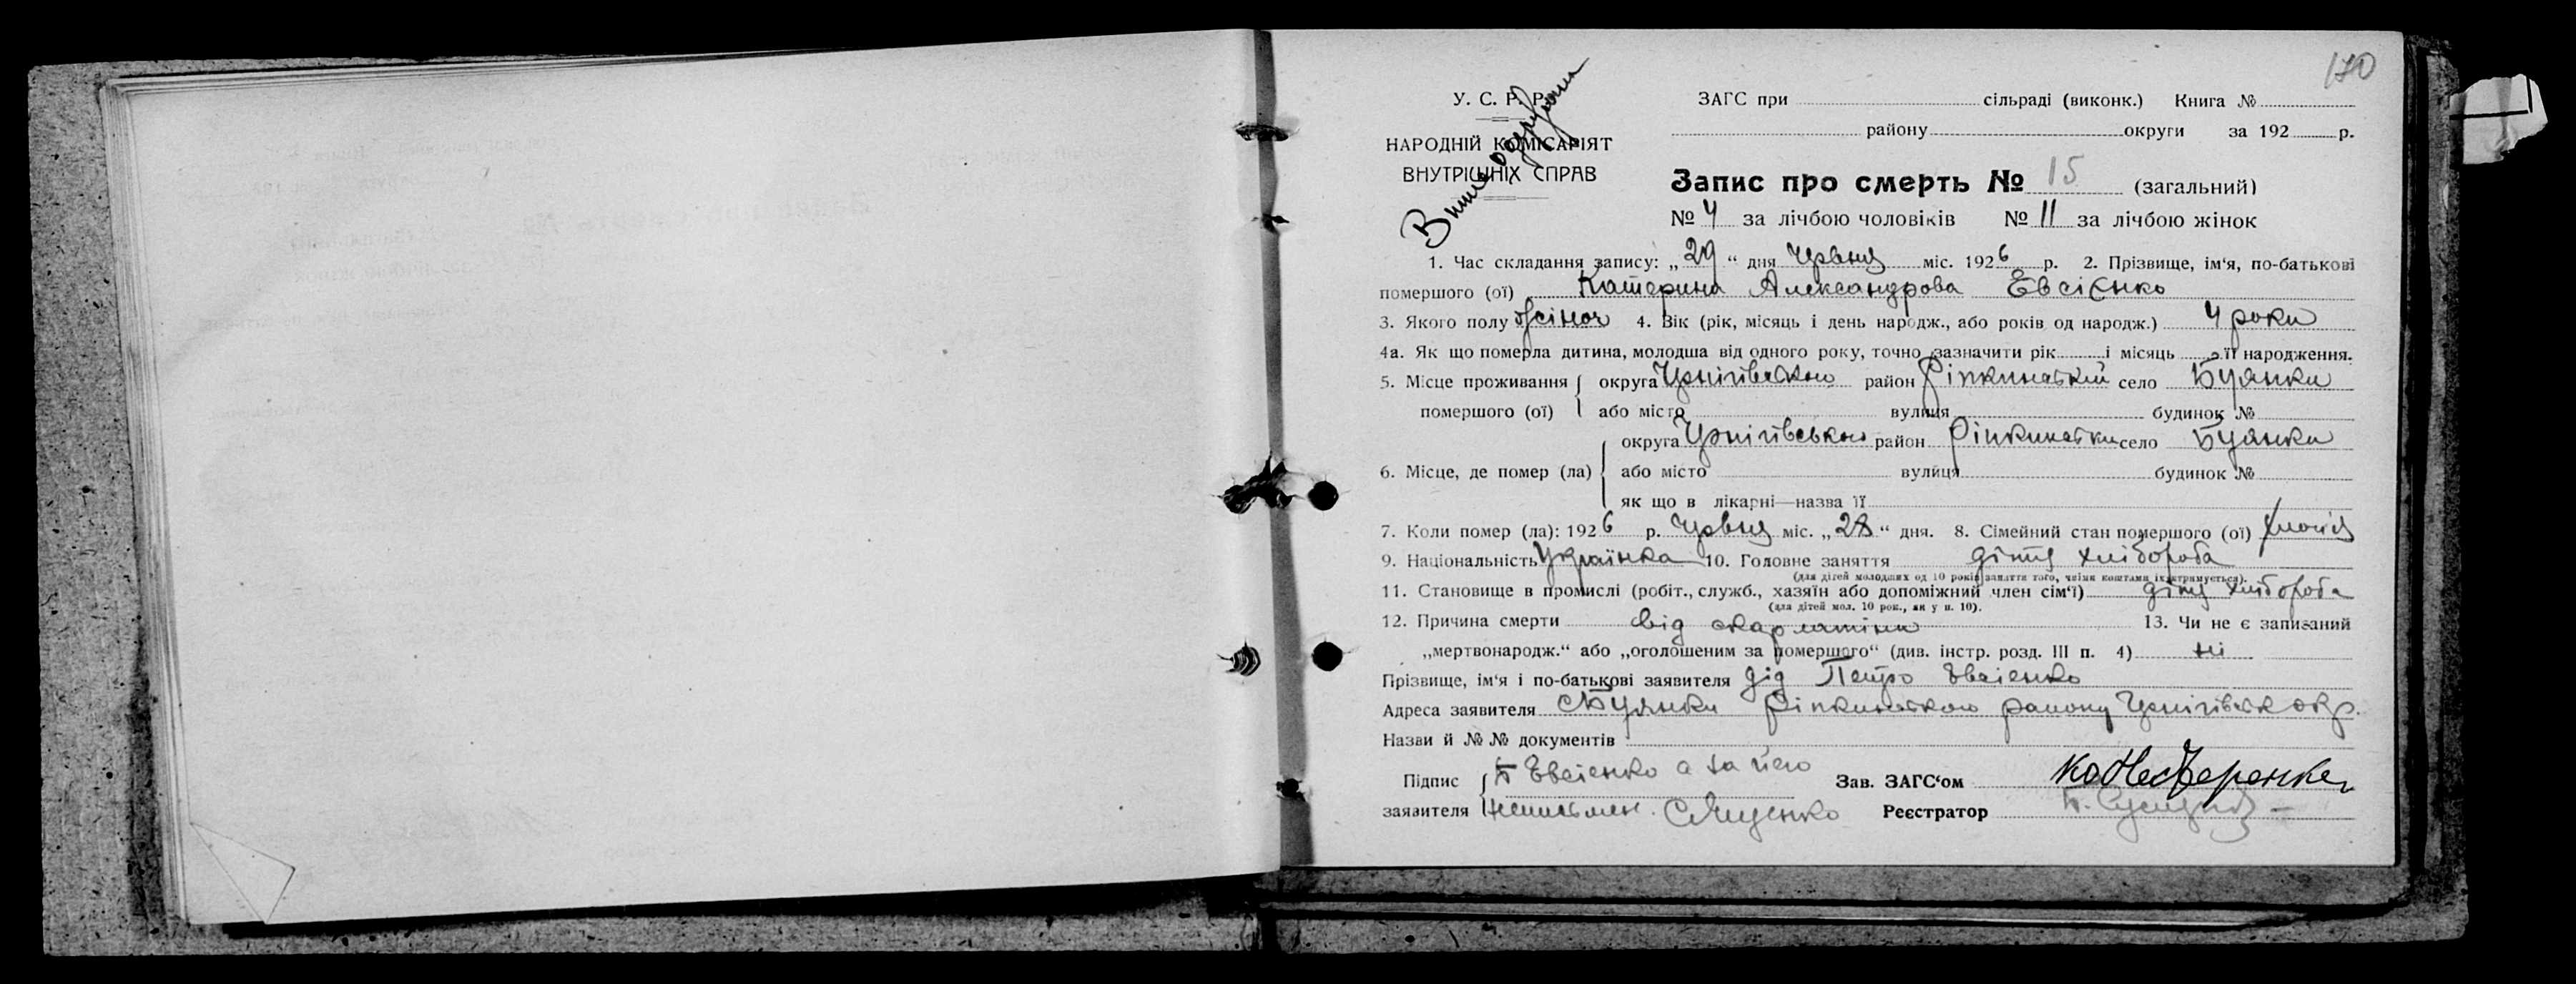 170
У. С. Р. Р.
НАРОДНІЙ КОМІСАРІЯТ
ВНУТРІШНІХ СПРАВ
ЗАГС при сільраді (виконк.) Книга №
району округи за 192 р.
Запис про смерть № 15 (загальний)
№ 4 за лічбою чоловіків № 11 за лічбою жінок
1. Час складання запису: „29“ дня Червня міс. 1926 р. 2. Прізвище, ім‘я, по-батькові
помершого (ої) Катерина Александрова Евсієнко
3. Якого полу жіноч 4. Вік (рік, місяць і день народж., або років од народж.) 4 роки
4а. Як що померла дитина, молодша від одного року, точно зазначити рік і місяць її народження.
5. Місце проживання помершого (ої) округа Чернігівською район Ріпкинський село Буянки
або місто вулиця будинок №
6. Місце, де помер (ла) округа Чернігівською район Ріпкинськи село Буянки
або місто вулиця будинок №
як що в лікарні—назва її
7. Коли помер (ла): 1926 р. Червня міс. „28“ дня. 8. Сімейний стан помершого (ої)
9. Національність Українка 10. Головне заняття дітя хлібороба
(для дітей молодших од 10 років заняття того, чиїми коштами їх утримується).
11. Становище в промислі (робіт., служб., хазяїн або допоміжний член сім‘ї) дітя хлібороба
(для дітей мол. 10 рок., як у п. 10).
12. Причина смерти від скарлатіни 13. Чи не є записаний
„мертвонародж.“ або „оголошеним за помершого“ (див. інстр. розд. III п. 4) ні
Прізвище, ім‘я і по-батькові заявителя дід Петро Евсієнко
Адреса заявителя с Буянки Ріпкинською району Чернігівськ окр.
Назви й № № документів
Підпис заявителя П Евсієнко а за його
неписьмен. С Ященко
Зав. ЗАГС‘ом
Реєстратор